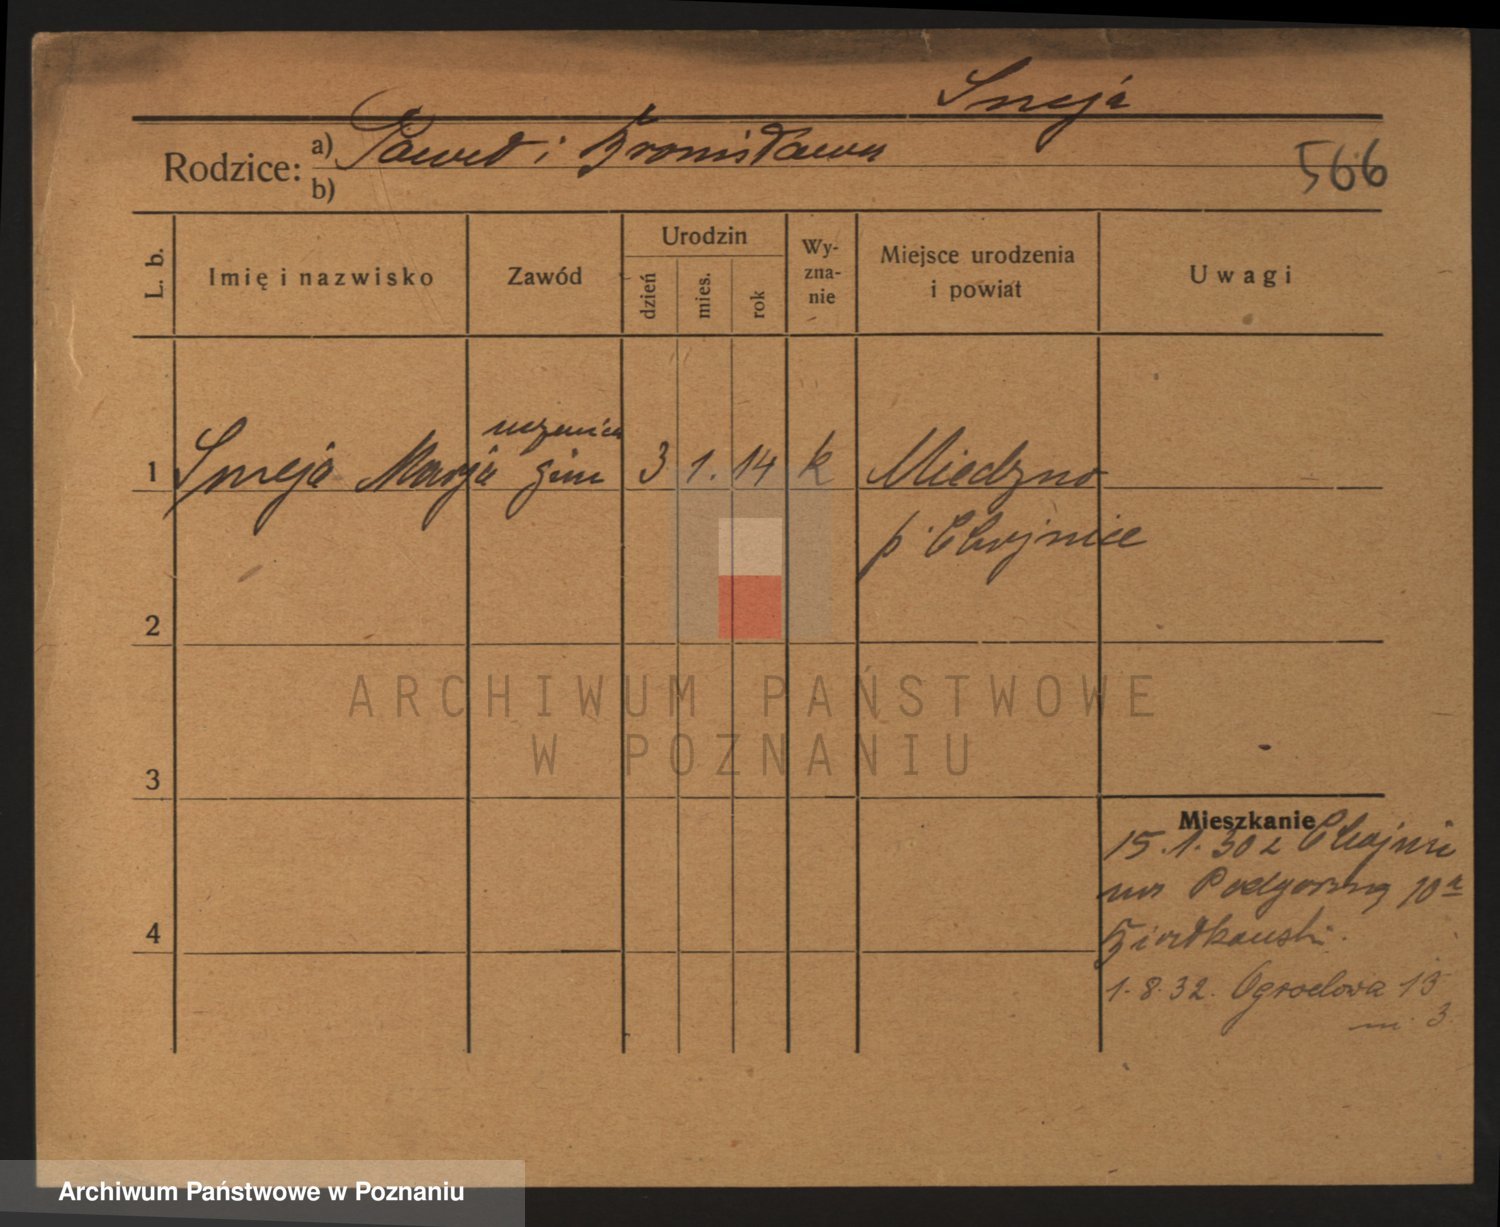 Smeja
Rodzice: a) Paweł i Bronisława
b)
566
L. b.
Imię i nazwisko
Zawód
Urodzin
dzień
mies.
rok
Wy-
zna-
nie
Miejsce urodzenia
i powiat
Uwagi
uczenica
1 Smeja Marja gim 3 1. 14 k Miedzno
p. Chojnice
2
ARCHIWUM PAŃSTWOWE
W POZNANIU
3
Mieszkanie
15.1.30 z Chojnic
na Podgórną 10a
4
1.8.32. Ogrodowa 13
m. 3
Archiwum Państwowe w Poznaniu